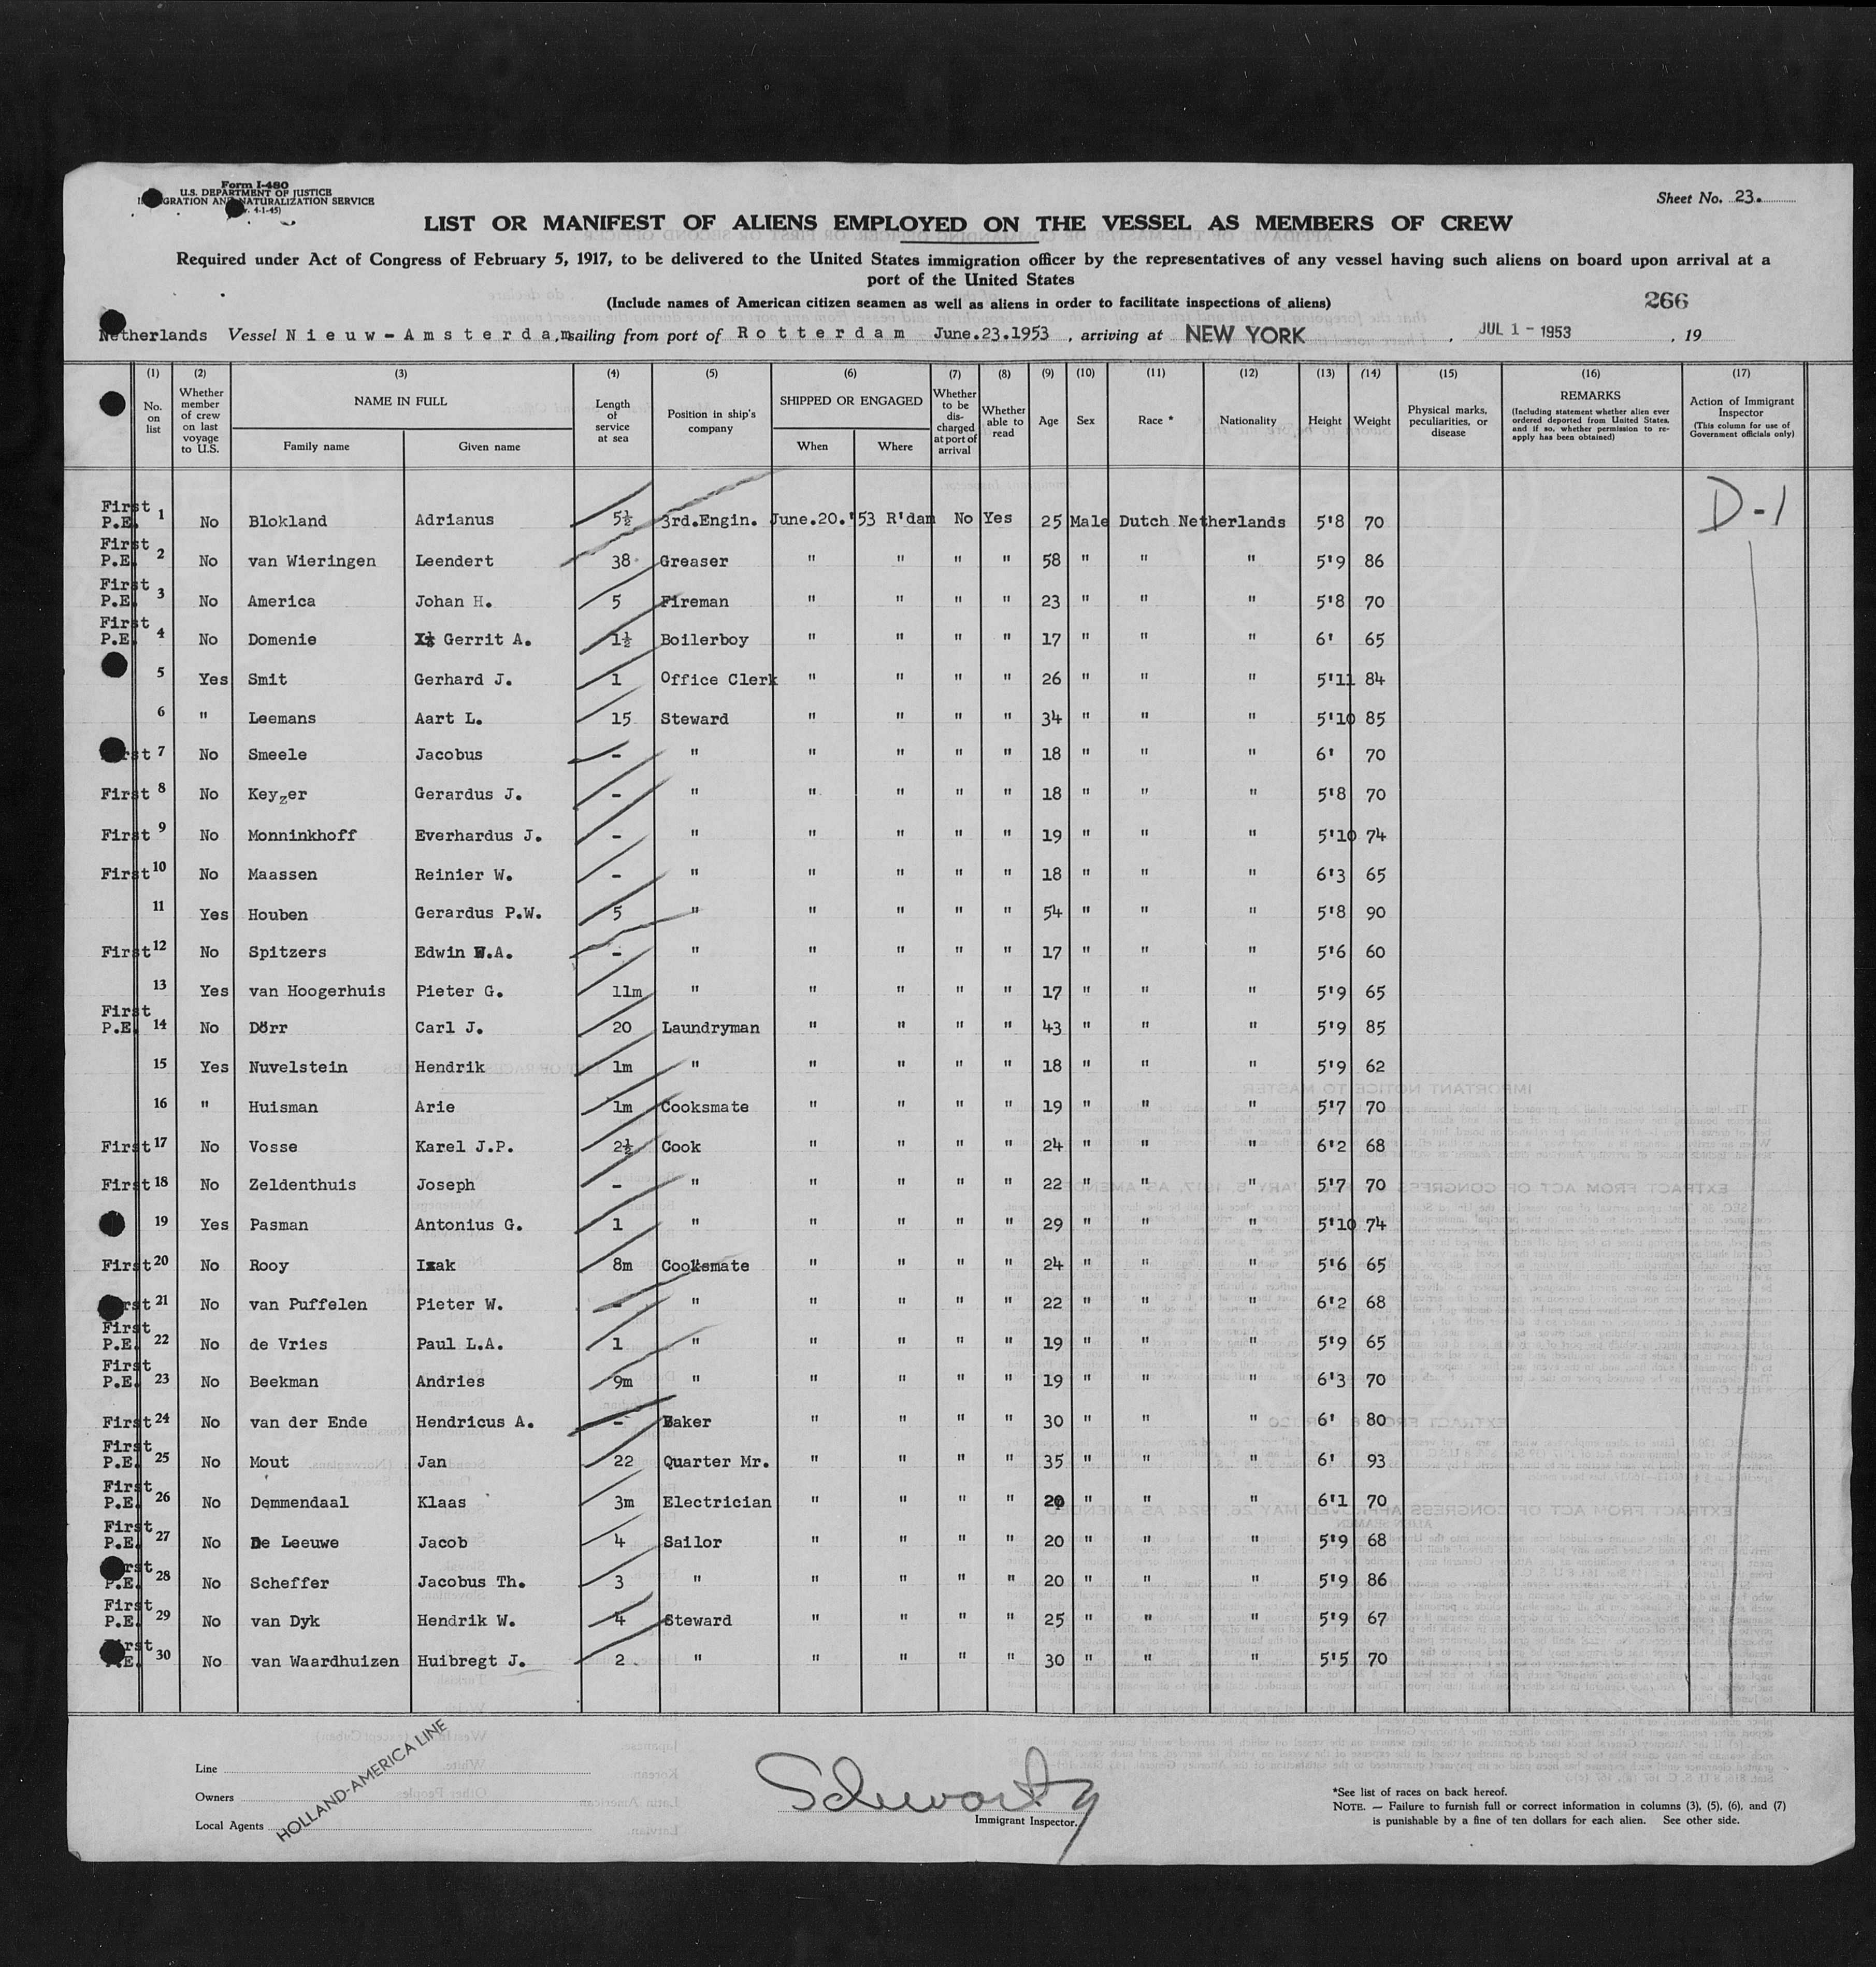 Form I-480
U.S. DEPARTMENT OF JUSTICE
IMMIGRATION AND NATURALIZATION SERVICE
4-1-45)
Sheet No. 23.
LIST OR MANIFEST OF ALIENS EMPLOYED ON THE VESSEL AS MEMBERS OF CREW
Required under Act of Congress of February 5, 1917, to be delivered to the United States immigration officer by the representatives of any vessel having such aliens on board upon arrival at a
port of the United States
(Include names of American citizen seamen as well as aliens in order to facilitate inspections of aliens)
266
Netherlands Vessel Nieuw-Amsterdam, sailing from port of Rotterdam June.23.1953, arriving at NEW YORK, JUL 1 - 1953, 19
(1) No. on list
(2) Whether member of crew on last voyage to U.S.
(3) NAME IN FULL Family name Given name
(4) Length of service at sea
(5) Position in ship's company
(6) SHIPPED OR ENGAGED When Where
(7) Whether to be discharged at port of arrival
(8) Whether able to read
(9) Age
(10) Sex
(11) Race *
(12) Nationality
(13) Height
(14) Weight
(15) Physical marks, peculiarities, or disease
(16) REMARKS (Including statement whether alien ever ordered deported from United States, and if so, whether permission to reapply has been obtained)
(17) Action of Immigrant Inspector (This column for use of Government officials only)
First P.E. 1 No Blokland Adrianus 5½ 3rd.Engin. June.20.'53 R'dam No Yes 25 Male Dutch Netherlands 5'8 70 D-1
First P.E. 2 No van Wieringen Leendert 38 Greaser " " " " 58 " " " 5'9 86
First P.E. 3 No America Johan H. 5 Fireman " " " " 23 " " " 5'8 70
First P.E. 4 No Domenie Gerrit A. 1½ Boilerboy " " " " 17 " " " 6' 65
5 Yes Smit Gerhard J. 1 Office Clerk " " " " 26 " " " 5'11 84
6 " Leemans Aart L. 15 Steward " " " " 34 " " " 5'10 85
First 7 No Smeele Jacobus - " " " " " 18 " " " 6' 70
First 8 No Keyzer Gerardus J. - " " " " " 18 " " " 5'8 70
First 9 No Monninkhoff Everhardus J. - " " " " " 19 " " " 5'10 74
First 10 No Maassen Reinier W. - " " " " " 18 " " " 6'3 65
11 Yes Houben Gerardus P.W. 5 " " " " " 54 " " " 5'8 90
First 12 No Spitzers Edwin W.A. - " " " " " 17 " " " 5'6 60
13 Yes van Hoogerhuis Pieter G. 11m " " " " " 17 " " " 5'9 65
First P.E. 14 No Dörr Carl J. 20 Laundryman " " " " 43 " " " 5'9 85
15 Yes Nuvelstein Hendrik 1m " " " " " 18 " " " 5'9 62
16 " Huisman Arie 1m Cooksmate " " " " 19 " " " 5'7 70
First 17 No Vosse Karel J.P. 2½ Cook " " " " 24 " " " 6'2 68
First 18 No Zeldenthuis Joseph - " " " " " 22 " " " 5'7 70
19 Yes Pasman Antonius G. 1 " " " " " 29 " " " 5'10 74
First 20 No Rooy Izak 8m Cooksmate " " " " 24 " " " 5'6 65
First 21 No van Puffelen Pieter W. - " " " " " 22 " " " 6'2 68
First P.E. 22 No de Vries Paul L.A. 1 " " " " " 19 " " " 5'9 65
First P.E. 23 No Beekman Andries 9m " " " " " 19 " " " 6'3 70
First 24 No van der Ende Hendricus A. - Baker " " " " 30 " " " 6' 80
First P.E. 25 No Mout Jan 22 Quarter Mr. " " " " 35 " " " 6' 93
First P.E. 26 No Demmendaal Klaas 3m Electrician " " " " 20 " " " 6'1 70
First P.E. 27 No De Leeuwe Jacob 4 Sailor " " " " 20 " " " 5'9 68
First P.E. 28 No Scheffer Jacobus Th. 3 " " " " " 20 " " " 5'9 86
First P.E. 29 No van Dyk Hendrik W. 4 Steward " " " " 25 " " " 5'9 67
First P.E. 30 No van Waardhuizen Huibregt J. 2 " " " " " 30 " " " 5'5 70
Line
Owners
Local Agents
HOLLAND-AMERICA LINE
Schwartz
Immigrant Inspector.
*See list of races on back hereof.
NOTE. — Failure to furnish full or correct information in columns (3), (5), (6), and (7)
is punishable by a fine of ten dollars for each alien. See other side.